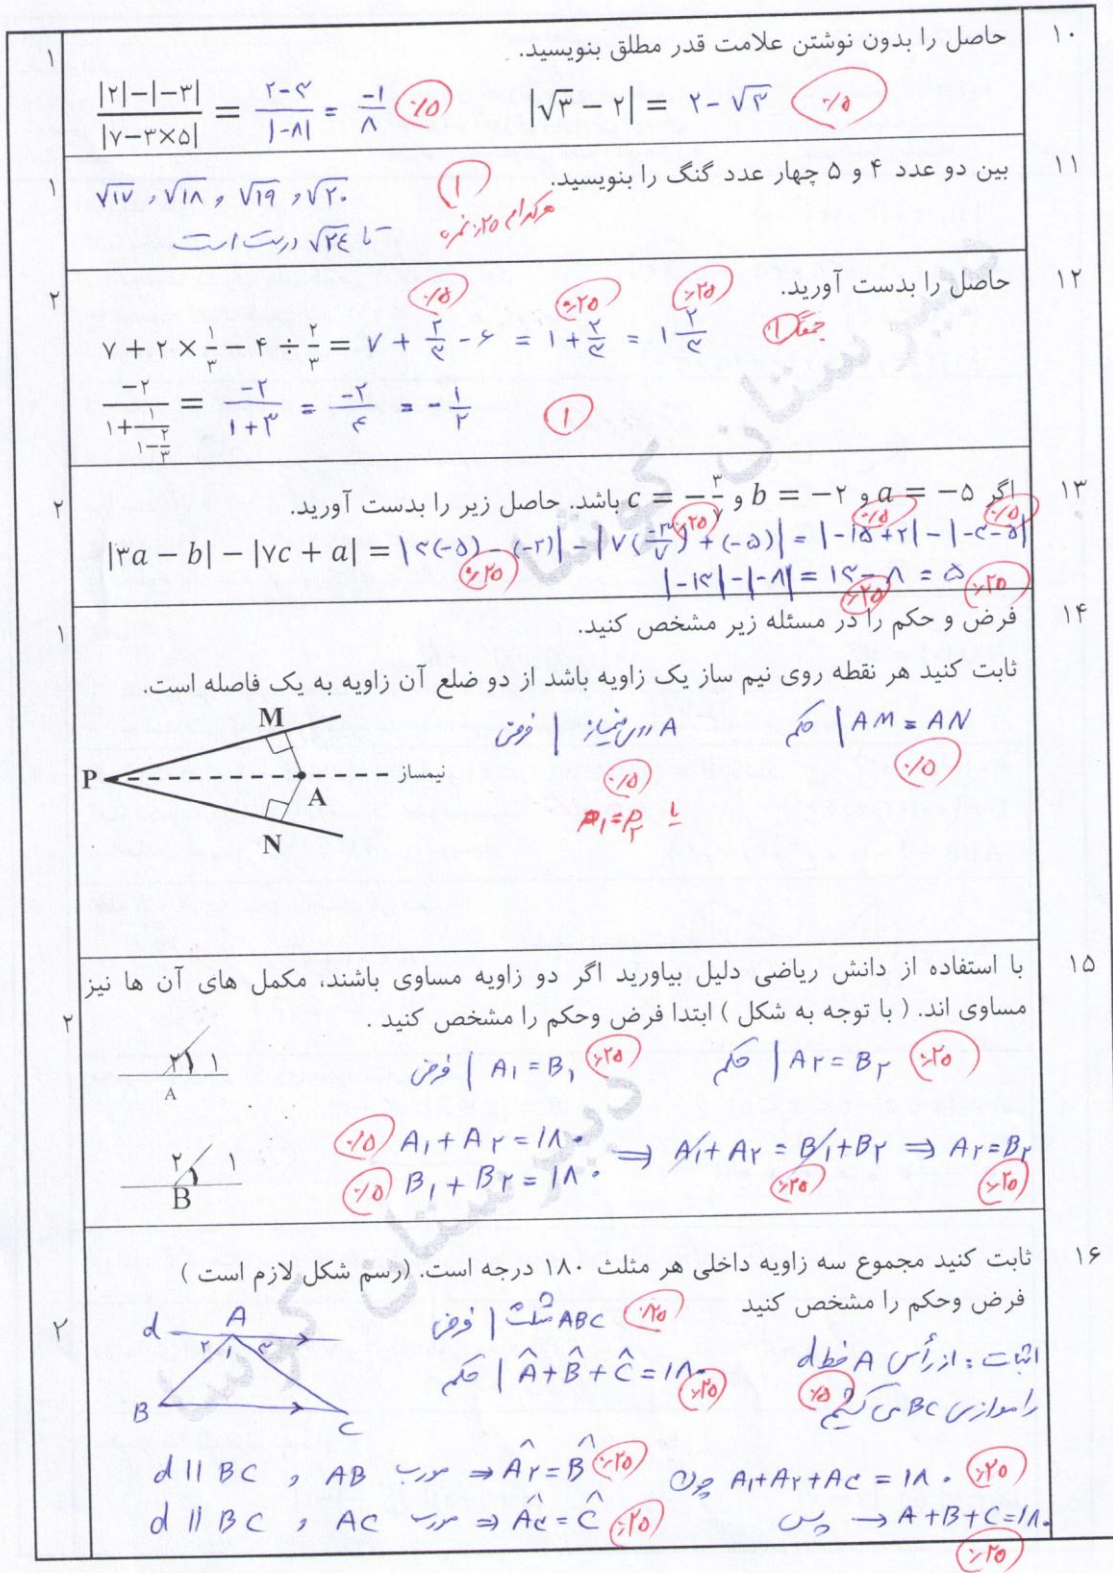 ۱۰
حاصل را بدون نوشتن علامت قدر مطلق بنویسید.
۱
|۲|−|−۳| / |۷−۳×۵| = ۲−۳ / |−۸| = −۱/۸ ۰/۵
|√۳ − ۲| = ۲ − √۳ ۰/۵
۱۱
بین دو عدد ۴ و ۵ چهار عدد گنگ را بنویسید.
۱
√۱۷ و √۱۸ و √۱۹ و √۲۰ ۱
هرکدام ۰/۲۵ نمره
تا √۲۴ درست است
۱۲
حاصل را بدست آورید.
۲
۰/۵ ۰/۲۵ ۰/۲۵
۷ + ۲ × ۱/۳ − ۴ ÷ ۲/۳ = ۷ + ۲/۳ − ۶ = ۱ + ۲/۳ = ۱ ۲/۳ جمعاً ۱
−۲ / (۱ + ۱/(۱ − ۲/۳)) = −۲ / ۱+۳ = −۲/۴ = −۱/۲ ۱
۱۳
اگر a = −۵ و b = −۲ و c = −۳/۷ باشد. حاصل زیر را بدست آورید.
۲
۰/۲۵ ۰/۵ ۰/۵
|۳a − b| − |۷c + a| = |۳(−۵) − (−۲)| − |۷(−۳/۷) + (−۵)| = |−۱۵+۲| − |−۳−۵|
۰/۲۵ |−۱۳| − |−۸| = ۱۳ − ۸ = ۵ ۰/۲۵
۰/۲۵
۱۴
فرض و حکم را در مسئله زیر مشخص کنید.
۱
ثابت کنید هر نقطه روی نیم ساز یک زاویه باشد از دو ضلع آن زاویه به یک فاصله است.
فرض | A روی نیمساز
حکم | AM = AN
۰/۵ ۰/۵
یا P۱ = P۲
M
P
نیمساز
A
N
۱۵
با استفاده از دانش ریاضی دلیل بیاورید اگر دو زاویه مساوی باشند، مکمل های آن ها نیز
مساوی اند. ( با توجه به شکل ) ابتدا فرض وحکم را مشخص کنید .
۲
فرض | A۱ = B۱ ۰/۲۵
حکم | A۲ = B۲ ۰/۲۵
۲ ۱
A
۲ ۱
B
۰/۵ A۱ + A۲ = ۱۸۰
⇒ A۱ + A۲ = B۱ + B۲ ⇒ A۲ = B۲
۰/۵ B۱ + B۲ = ۱۸۰
۰/۲۵ ۰/۲۵
۱۶
ثابت کنید مجموع سه زاویه داخلی هر مثلث ۱۸۰ درجه است. (رسم شکل لازم است )
فرض وحکم را مشخص کنید
۲
فرض | مثلث ABC ۰/۲۵
حکم | Â + B̂ + Ĉ = ۱۸۰ ۰/۲۵
اثبات : از رأس A خط d
را موازی BC می کشیم ۰/۵
d A
۲ ۱ ۳
B C
d || BC و AB مورب ⇒ Â۲ = B̂ ۰/۲۵
چون A۱ + A۲ + A۳ = ۱۸۰ ۰/۲۵
d || BC و AC مورب ⇒ Â۳ = Ĉ ۰/۲۵
پس → A + B + C = ۱۸۰
۰/۲۵
دبیرستان کوشا
دبیرستان کوشا